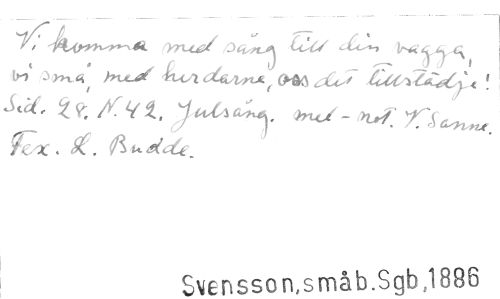 Vi komma med sång till din vagga,
vi små, med herdarne, oss det tillstädje!
Sid. 28. N.42. Julsång. mel-not. V. Sanne.
Tex. L. Budde.
Svensson,småb.Sgb,1886